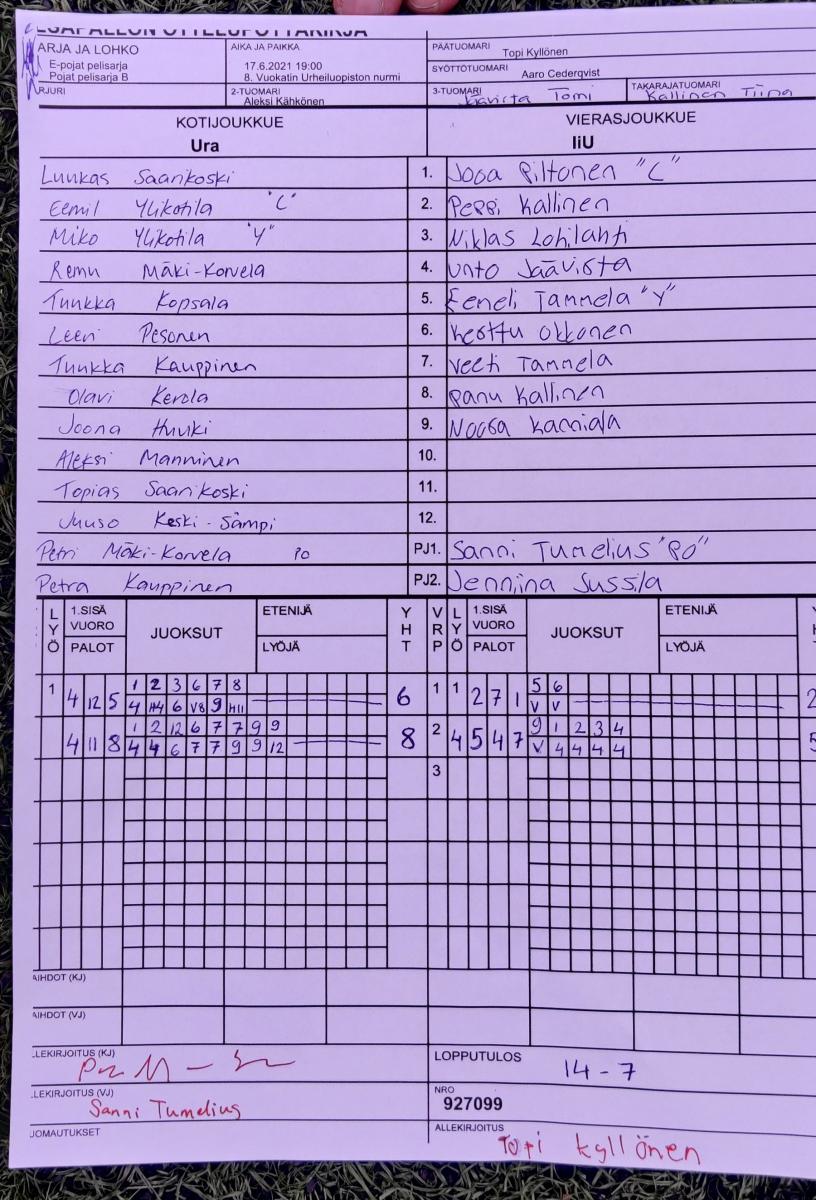 PESÄPALLON OTTELUPÖYTÄKIRJA
ARJA JA LOHKO
E-pojat pelisarja
Pojat pelisarja B
AIKA JA PAIKKA
17.6.2021 19:00
8. Vuokatin Urheiluopiston nurmi
PÄÄTUOMARI Topi Kyllönen
SYÖTTÖTUOMARI Aaro Cederqvist
RJURI
2-TUOMARI
Aleksi Kähkönen
3-TUOMARI Jäävista Tomi
TAKARAJATUOMARI
Kallinen Tiina
KOTIJOUKKUE
Ura
VIERASJOUKKUE
IiU
Luukas Saarikoski 1. Jooa Piltonen "C"
Eemil Ylikotila "C" 2. Pessi Kallinen
Miko Ylikotila "Y" 3. Niklas Lohilahti
Remu Mäki-Korvela 4. Unto Jäävista
Tuukka Kopsala 5. Eeneli Tammela "Y"
Leevi Pesonen 6. Kerttu Okkonen
Tuukka Kauppinen 7. Veeti Tammela
Olavi Kerola 8. Panu Kallinen
Joona Huuki 9. Noosa
Aleksi Manninen 10.
Topias Saarikoski 11.
Juuso Keski-Sämpi 12.
Petri Mäki-Korvela PO PJ1. Sanni Tumelius "PO"
Petra Kauppinen PJ2. Jenniina Sussila
LYÖ 1.SISÄ VUORO PALOT JUOKSUT ETENIJÄ LYÖJÄ YHT VRP LYÖ 1.SISÄ VUORO PALOT JUOKSUT ETENIJÄ LYÖJÄ YHT
1 4 12 5 1 2 3 6 7 8 6 1 1 2 7 1 5 6 2
4 H4 6 V8 9 H11 V V
4 11 8 1 2 12 6 7 7 9 9 8 2 4 5 4 7 9 1 2 3 4 5
4 4 6 7 7 9 9 12 V 4 4 4 4
3
AIHDOT (KJ)
AIHDOT (VJ)
LEKIRJOITUS (KJ)
LOPPUTULOS 14-7
LEKIRJOITUS (VJ)
Sanni Tumelius
NRO
927099
JOMAUTUKSET
ALLEKIRJOITUS
Topi Kyllönen